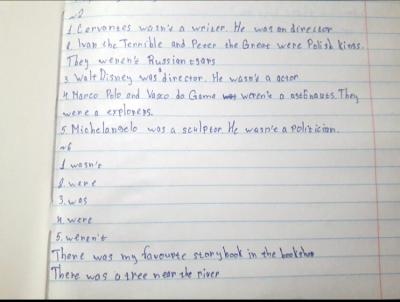 №2
1. Cervantes wasn't a writer. He was an director
2. Ivan the Terrible and Peter the Great were Polish kings.
They weren't Russian tsars
3. Walt Disney was a director. He wasn't a actor
4. Marco Polo and Vasco da Gama weren't a astronauts. They
were a explorers.
5. Michelangelo was a sculptor. He wasn't a politician.
№6
1. wasn't
2. were
3. was
4. were
5. weren't
There was my favourite storybook in the bookshop
There was a tree near the river